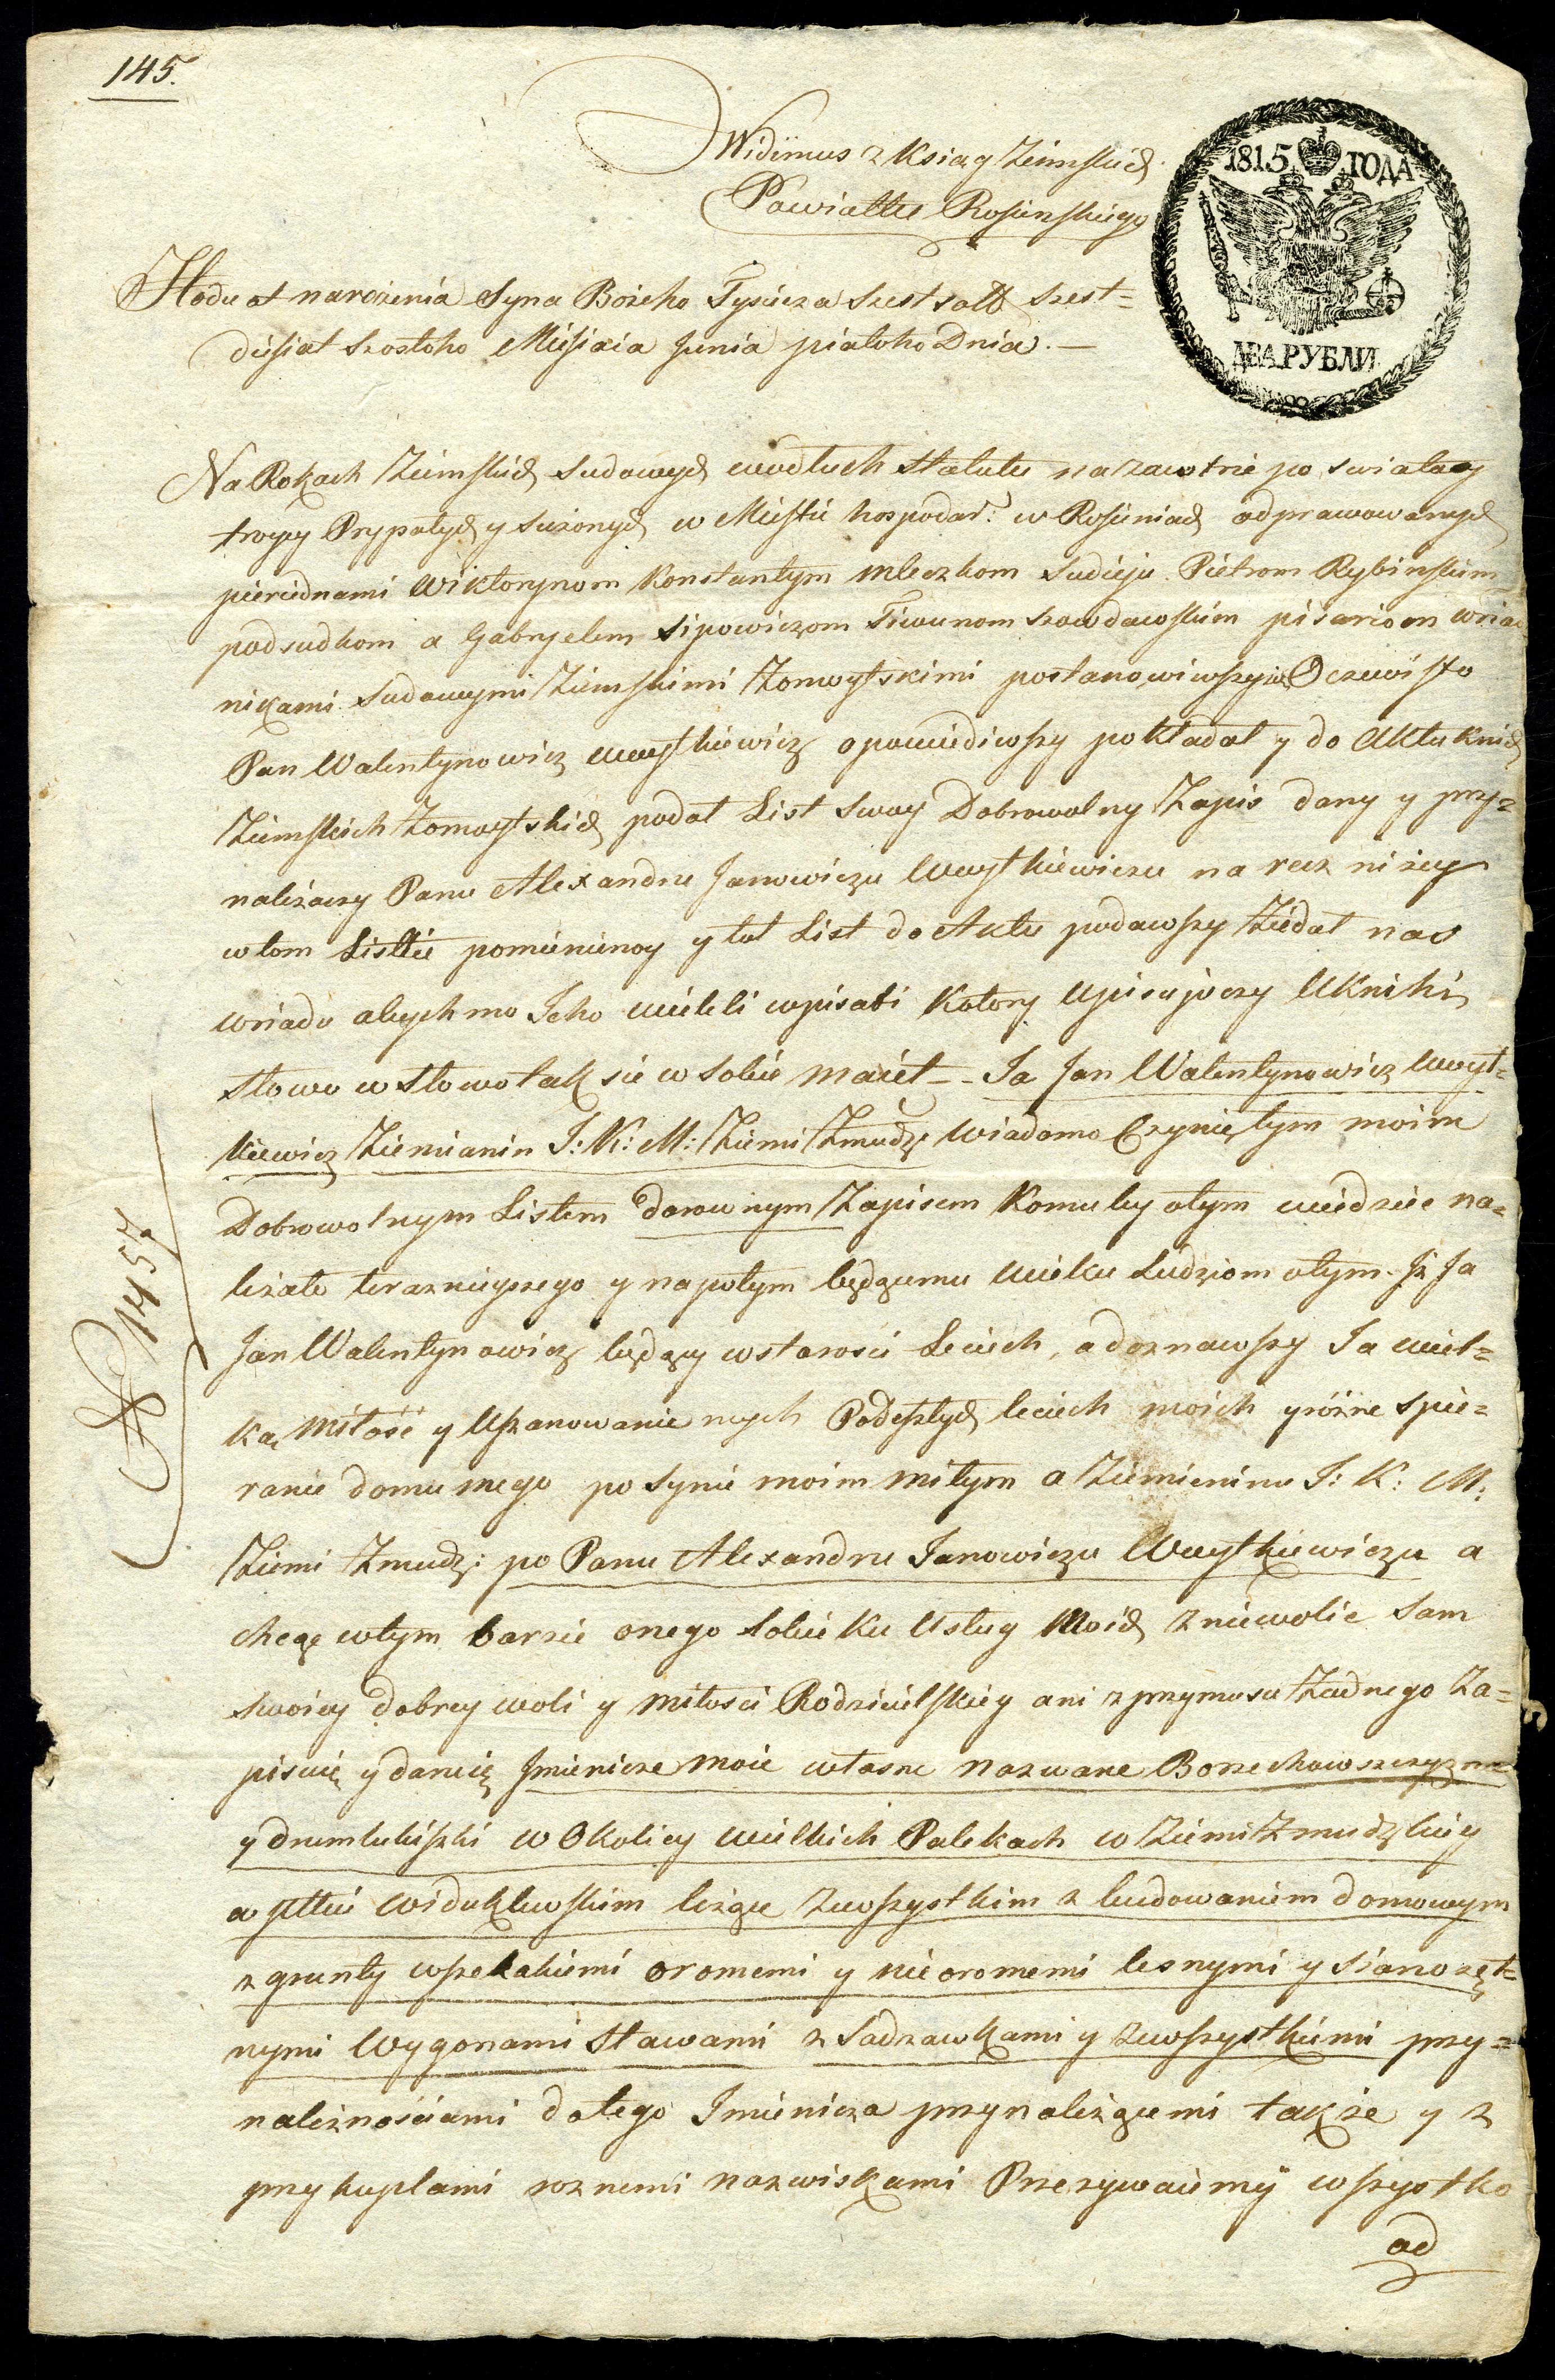 145.
Widimus z Ksiąg Ziemskich
Powiattu Rosieńskiego
1815 ГОДА
ДВА РУБЛИ
Hodu ot narożenia Syna Bożeho Tysiecza szest sott szest=
diesiat szostoho Miesiaca Junia piatoho Dnia. —
Na Rokach Ziemskich sudowych wodłuch Statutu nazawtrie po swiatoy
troycy Prypałych y sużonych w Miestie hospodar: w Rosieniach odprawowanych
pieriednami Wiktorynom Konstantym Mleczkom Sudieju Pietrom Rybinskim
podsudkom a Gabryelem Sipowiczom Tiwunom Szowdowskim pisariom wriad
nikami Sudowymi Ziemskimi Żomoytskimi postanowiwszysie Oczewisto
Pan Walentynowicz Woytkiewicz opowiediwszy pokładał y do Aktu knich
Ziemskich Żomoytskich podał List Swoy Dobrowolny Zapis dany y pry=
naleźaczy Panu Alexandru Janowiczu Woytkiewiczu na recz niżey
w tom Listie pomienienoy y tot List do Aktu podawszy Żiedał nas
wriadu abychmo Jeho wieleli wpisati Kotory Upisujoczy U Knihi
słowo w słowo tak sie w sobie maiet - - Ja Jan Walentynowicz Woyt=
kiewicz Ziemianin J: K: M: Ziemi Zmudz: Wiadomo Czynię tym moim
Dobrowolnym Listem darownym Zapisem Komu by o tym wiedzieć na=
leżało teraznieyszego y napotym będącemu wieku Ludziom o tym - Iż Ja
Jan Walentynowicz będący w starosci Leciech, a doznawszy Ja wiel=
ką Miłość y Uszanowanie mych Podeszłych leciech moich y różne spie=
ranie domu mego po Synie moim miłym a Ziemieninu J: K: M:
Ziemi Zmudz: po Panu Alexandru Janowiczu Woytkiewiczu a
chcąc w tym barzie onego sobie ku Usług Moich zniewolić Sam
swoiey dobrey woli y miłosci Rodzicielskiey ani z przymusu Żadnego Za=
pisuię y daruię Jmienicze moie własne nazwane Borzechowszczyzna
y drumlukiszki w Okolicy wielkich Polekach w Ziemi Zmudzkiey
w Pttcie Widuklewskim leżące ze wszystkim z budowaniem domowym
z grunty wszelakiemi oromemi y nieoromemi lesnymi y sianożęt=
nymi Wygonami Stawami z Sadzawkami y ze wszystkiemi przy=
należnościami do tego Imienicza przynależącemi także y z
przykuplami roznemi nazwiskami Przezywaiemy wszystko
ad
N 1457